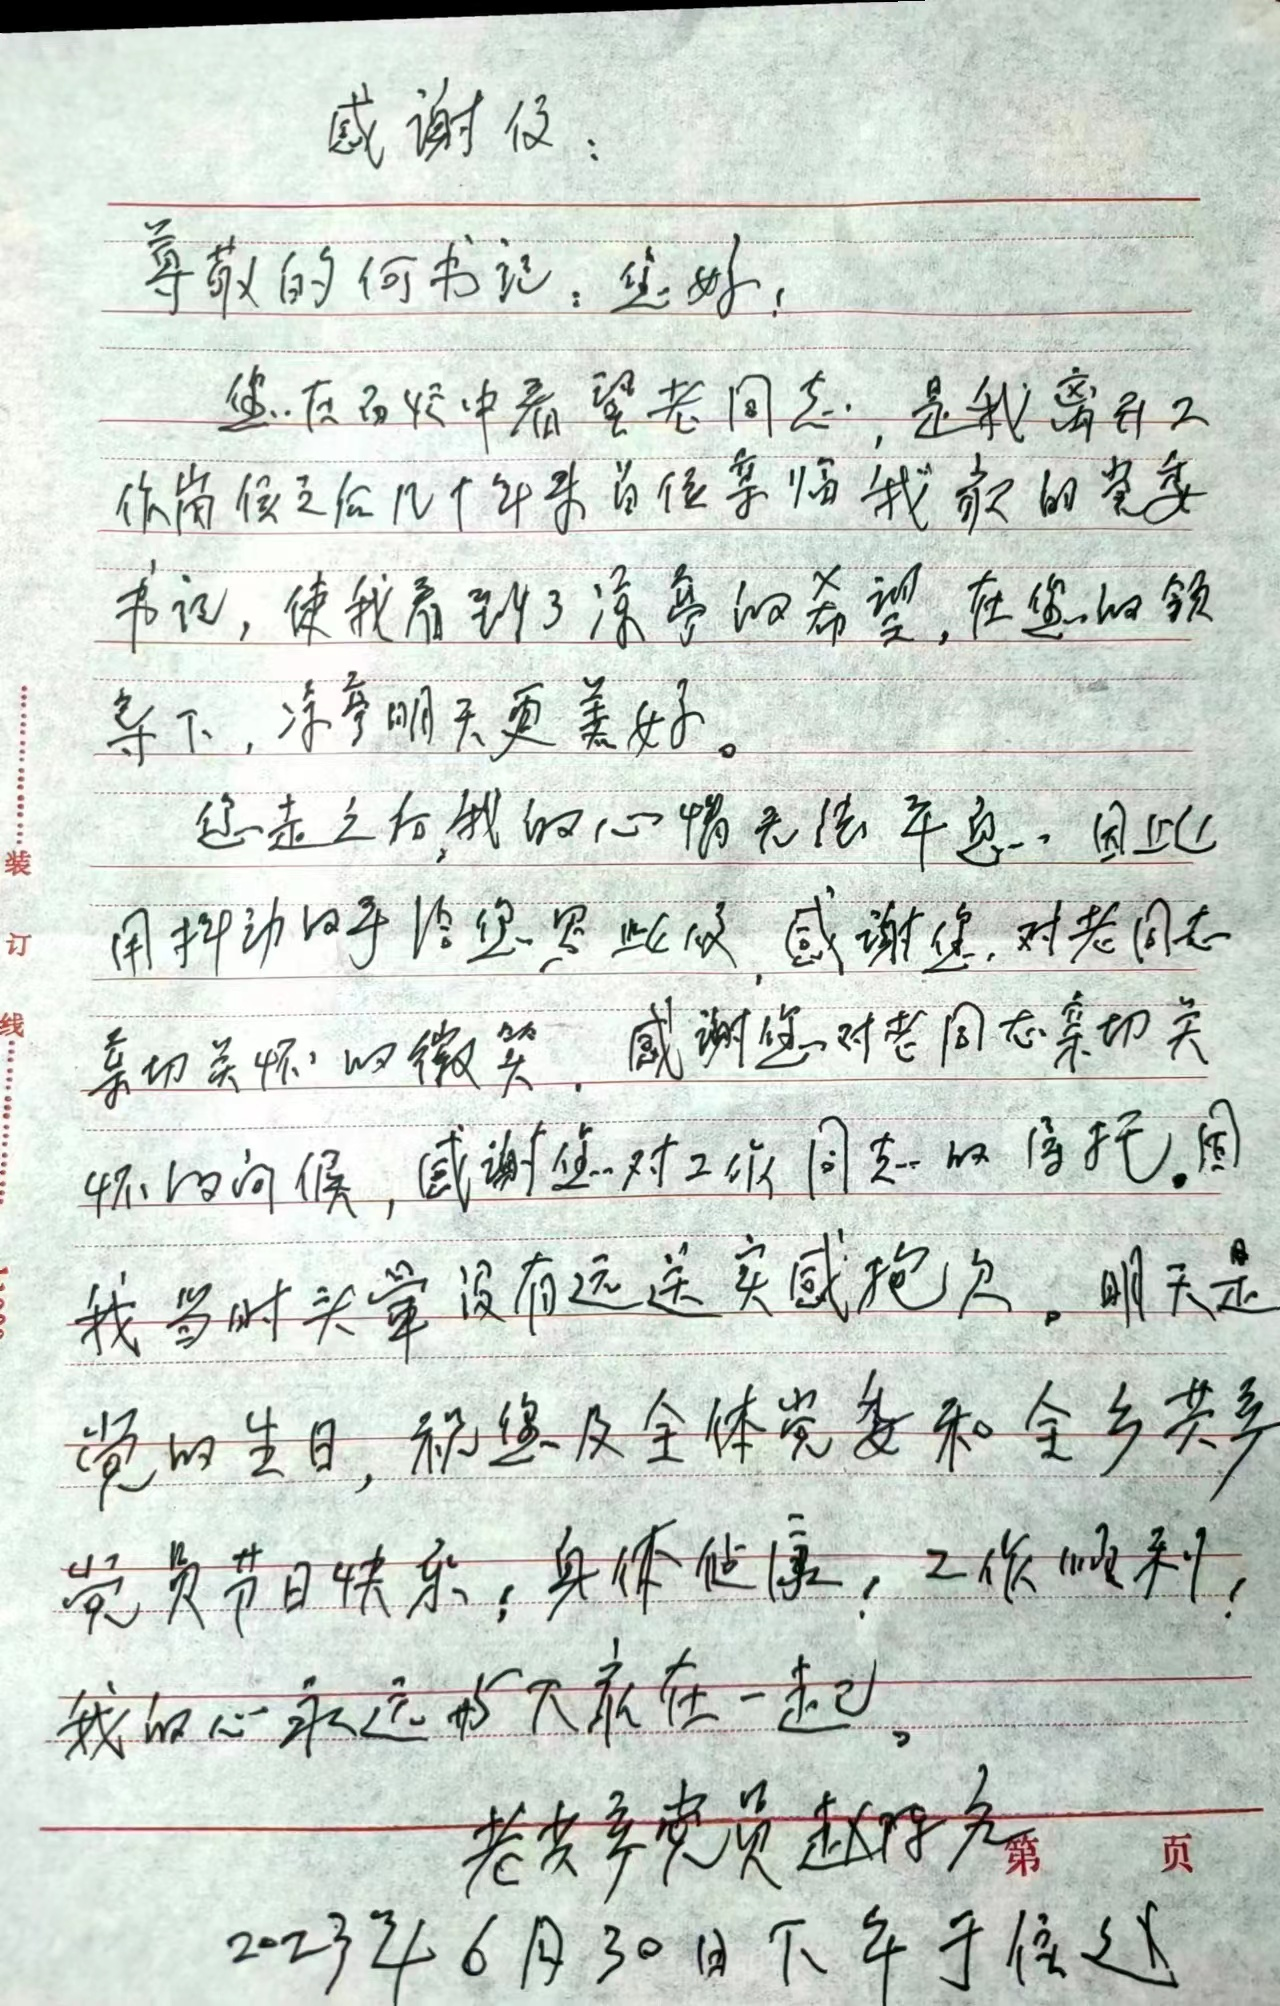 感谢信：
尊敬的何书记：您好！
您在百忙中看望老同志，是我离开工
作岗位之后几十年来首位亲临我家的党委
书记，使我看到了凉亭的希望，在您的领
导下，凉亭明天更美好。
您走之后，我的心情无法平息，因此
用抖动的手给您写此信，感谢您对老同志
亲切关怀的微笑，感谢您对老同志亲切关
怀的问候，感谢您对工作同志的信托。因
我当时头晕没有远送实感抱欠。明天是
党的生日，祝您及全体党委和全乡共产
党员节日快乐！身体健康！工作顺利！
我的心永远与大家在一起。
老共产党员赵
第 页
2023年6月30日下午于住
装
订
线